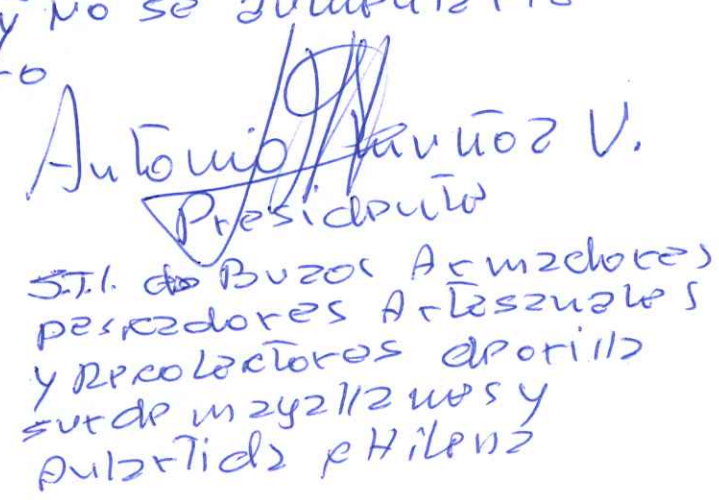 y No se
Antonio V.
Presidente
S.T.I. de Buzos Armadores
pescadores Artesanales
y Recolectores de orilla
sur de magallanes y
antartida cHilena